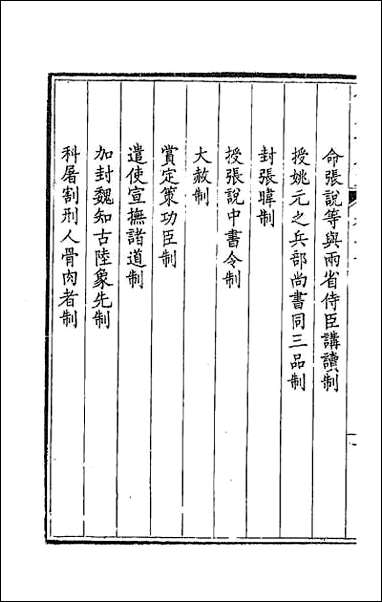 命張說等與兩省侍臣講讀制
授姚元之兵部尚書同三品制
封張暐制
授張說中書令制
大赦制
賞定策功臣制
遣使宣撫諸道制
加封魏知古陸象先制
科屠割刑人骨肉者制